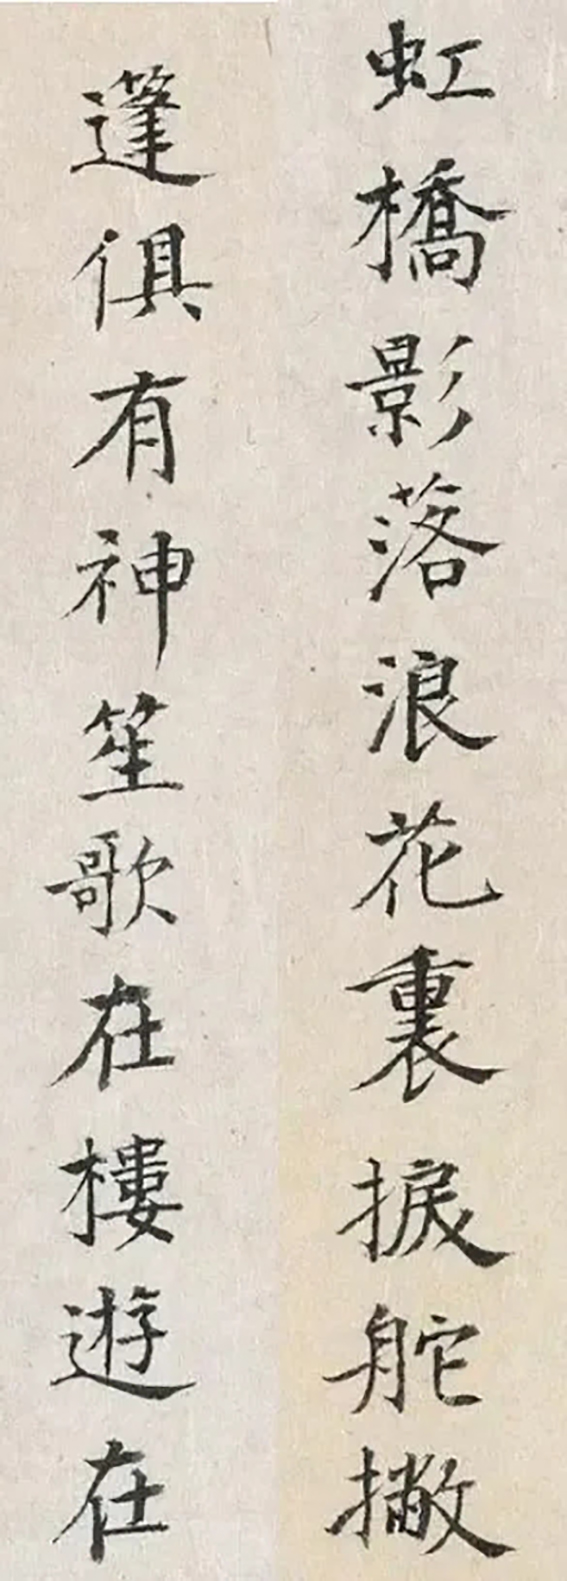 虹橋影落浪花裏捩舵撇
篷俱有神笙歌在樓遊在